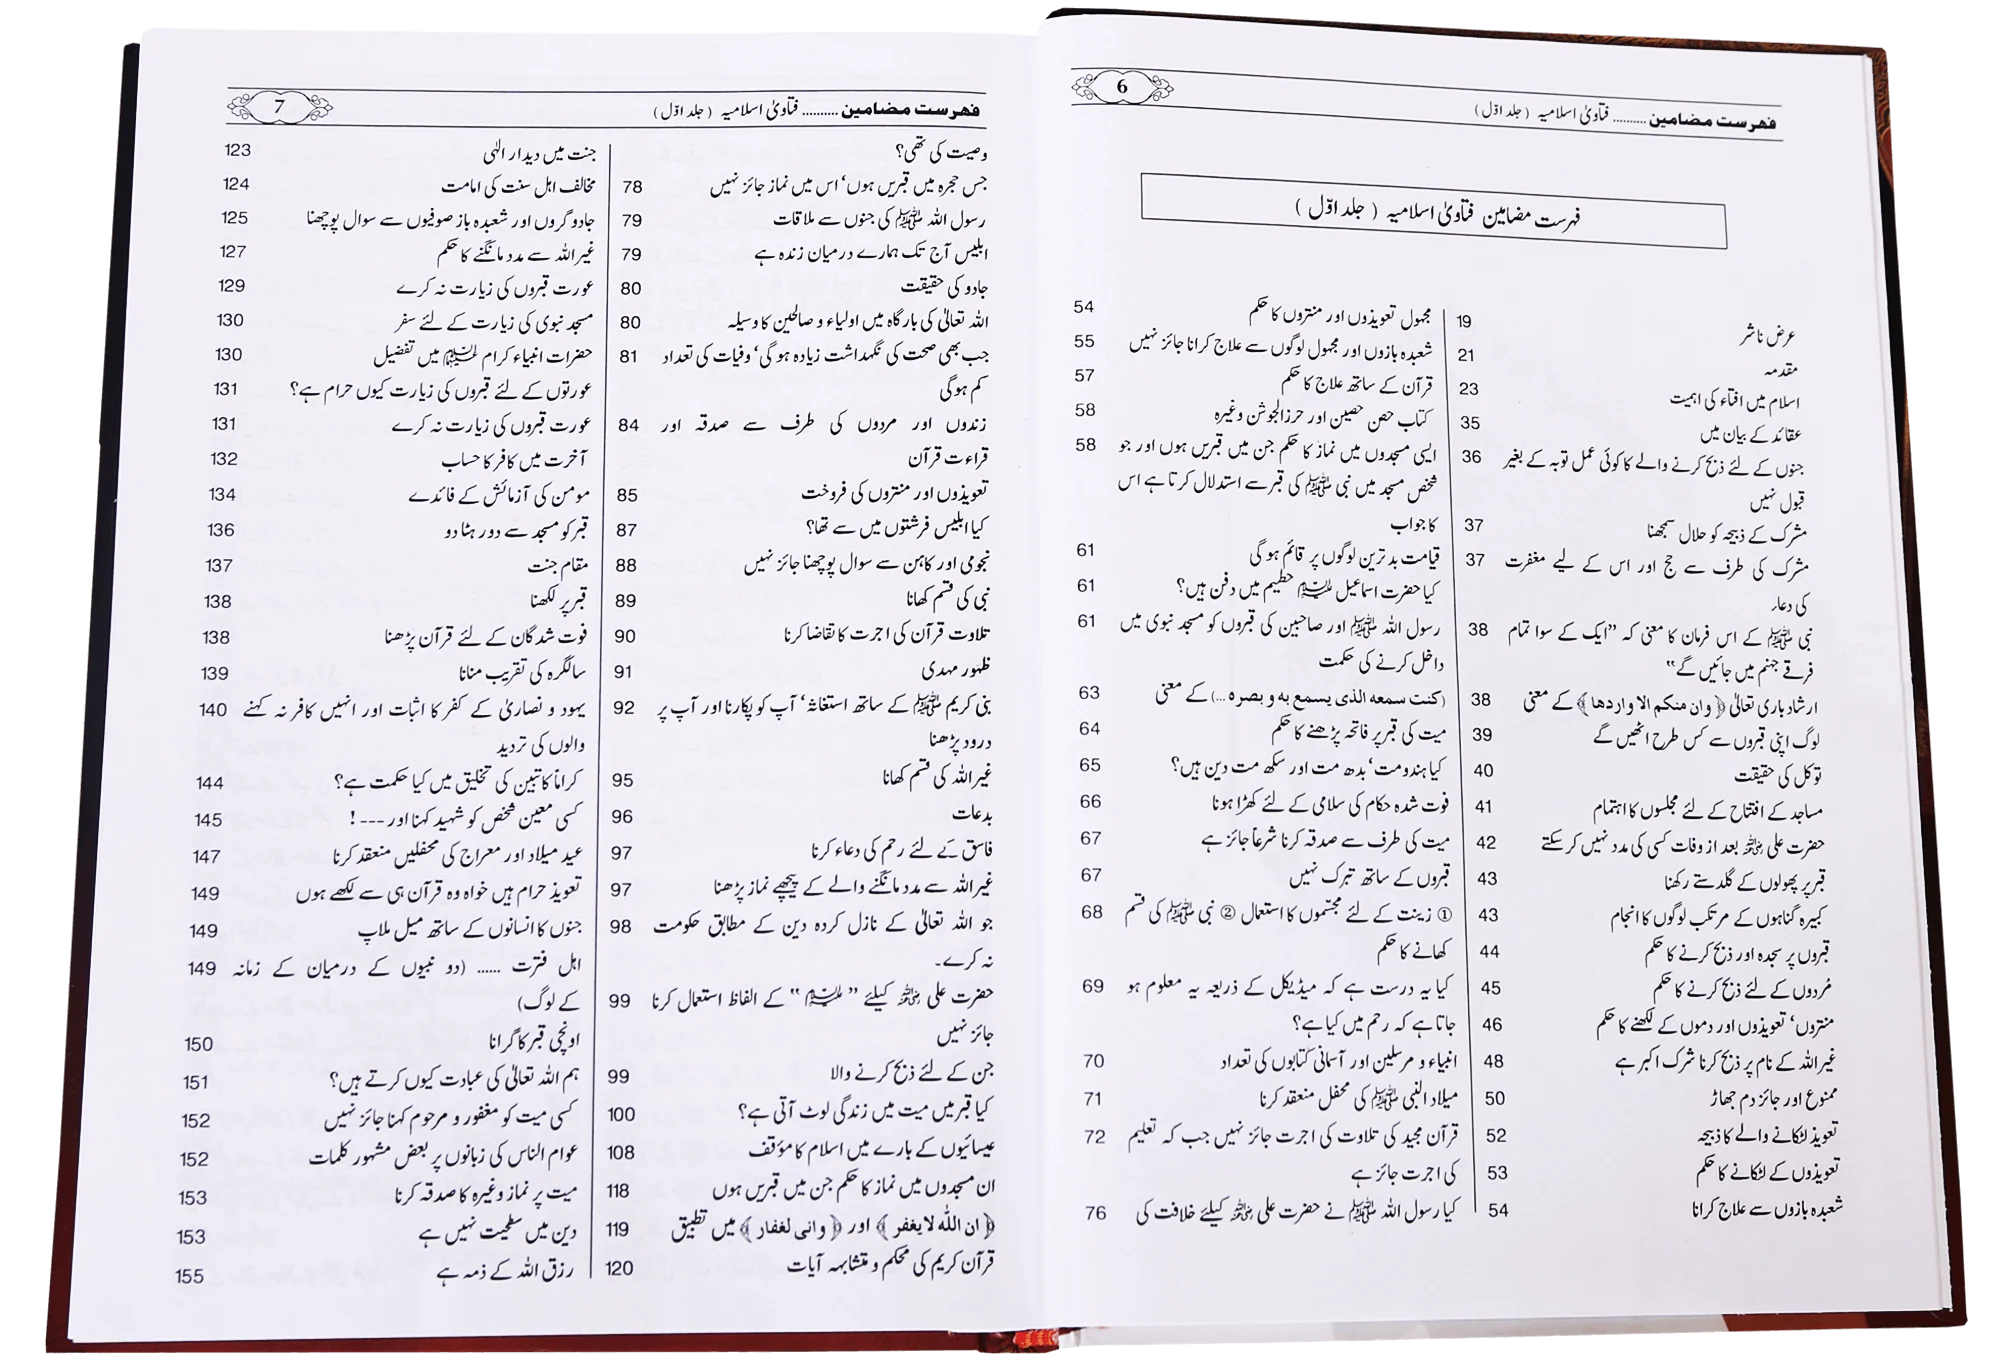 6
فہرست مضامین .......... فتاویٰ اسلامیہ ( جلد اوّل )
فہرست مضامین فتاویٰ اسلامیہ ( جلد اوّل )
عرض ناشر 19
مقدمہ 21
اسلام میں افتاء کی اہمیت 23
عقائد کے بیان میں 35
جنوں کے لئے ذبح کرنے والے کا کوئی عمل توبہ کے بغیر 36
قبول نہیں
مشرک کے ذبیحہ کو حلال سمجھنا 37
مشرک کی طرف سے حج اور اس کے لیے مغفرت 37
کی دعاء
نبی ﷺ کے اس فرمان کا معنی کہ ”ایک کے سوا تمام 38
فرقے جہنم میں جائیں گے“
ارشاد باری تعالیٰ ﴿وان منکم الا واردھا﴾ کے معنی 38
لوگ اپنی قبروں سے کس طرح اٹھیں گے 39
توکل کی حقیقت 40
مساجد کے افتتاح کے لئے مجلسوں کا اہتمام 41
حضرت علی رضی اللہ عنہ بعد از وفات کسی کی مدد نہیں کر سکتے 42
قبر پر پھولوں کے گلدستے رکھنا 43
کبیرہ گناہوں کے مرتکب لوگوں کا انجام 43
قبروں پر سجدہ اور ذبح کرنے کا حکم 44
مُردوں کے لئے ذبح کرنے کا حکم 45
منتروں‘ تعویذوں اور دموں کے لکھنے کا حکم 46
غیراللہ کے نام پر ذبح کرنا شرک اکبر ہے 48
ممنوع اور جائز دم جھاڑ 50
تعویذ لٹکانے والے کا ذبیحہ 52
تعویذوں کے لٹکانے کا حکم 53
شعبدہ بازوں سے علاج کرانا 54
مجہول تعویذوں اور منتروں کا حکم 54
شعبدہ بازوں اور مجہول لوگوں سے علاج کرانا جائز نہیں 55
قرآن کے ساتھ علاج کا حکم 57
کتاب حصن حصین اور حرزالجوشن وغیرہ 58
ایسی مسجدوں میں نماز کا حکم جن میں قبریں ہوں اور جو 58
شخص مسجد میں نبی ﷺ کی قبر سے استدلال کرتا ہے اس
کا جواب
قیامت بدترین لوگوں پر قائم ہوگی 61
کیا حضرت اسماعیل علیہ السلام حطیم میں دفن ہیں؟ 61
رسول اللہ ﷺ اور صاحبین کی قبروں کو مسجد نبوی میں 61
داخل کرنے کی حکمت
(کنت سمعه الذی یسمع به و بصره ...) کے معنی 63
میت کی قبر پر فاتحہ پڑھنے کا حکم 64
کیا ہندومت‘ بدھ مت اور سکھ مت دین ہیں؟ 65
فوت شدہ حکام کی سلامی کے لئے کھڑا ہونا 66
میت کی طرف سے صدقہ کرنا شرعاً جائز ہے 67
قبروں کے ساتھ تبرک نہیں 67
① زینت کے لئے مجسّموں کا استعمال ② نبی ﷺ کی قسم 68
کھانے کا حکم
کیا یہ درست ہے کہ میڈیکل کے ذریعہ یہ معلوم ہو 69
جاتا ہے کہ رحم میں کیا ہے؟
انبیاء و مرسلین اور آسمانی کتابوں کی تعداد 70
میلاد النبی ﷺ کی محفل منعقد کرنا 71
قرآن مجید کی تلاوت کی اجرت جائز نہیں جب کہ تعلیم 72
کی اجرت جائز ہے
کیا رسول اللہ ﷺ نے حضرت علی رضی اللہ عنہ کیلئے خلافت کی 76
7
فہرست مضامین .......... فتاویٰ اسلامیہ ( جلد اوّل )
وصیت کی تھی؟
جس حجرہ میں قبریں ہوں‘ اس میں نماز جائز نہیں 78
رسول اللہ ﷺ کی جنوں سے ملاقات 79
ابلیس آج تک ہمارے درمیان زندہ ہے 79
جادو کی حقیقت 80
اللہ تعالیٰ کی بارگاہ میں اولیاء و صالحین کا وسیلہ 80
جب بھی صحت کی نگہداشت زیادہ ہوگی‘ وفیات کی تعداد 81
کم ہوگی
زندوں اور مردوں کی طرف سے صدقہ اور 84
قراءت قرآن
تعویذوں اور منتروں کی فروخت 85
کیا ابلیس فرشتوں میں سے تھا؟ 87
نجومی اور کاہن سے سوال پوچھنا جائز نہیں 88
نبی کی قسم کھانا 89
تلاوت قرآن کی اجرت کا تقاضا کرنا 90
ظہور مہدی 91
بنی کریم ﷺ کے ساتھ استغاثہ‘ آپ کو پکارنا اور آپ پر 92
درود پڑھنا
غیراللہ کی قسم کھانا 95
بدعات 96
فاسق کے لئے رحم کی دعاء کرنا 97
غیراللہ سے مدد مانگنے والے کے پیچھے نماز پڑھنا 97
جو اللہ تعالیٰ کے نازل کردہ دین کے مطابق حکومت 98
نہ کرے۔
حضرت علی رضی اللہ عنہ کیلئے ” علیہ السلام “ کے الفاظ استعمال کرنا 99
جائز نہیں
جن کے لئے ذبح کرنے والا 99
کیا قبر میں میت میں زندگی لوٹ آتی ہے؟ 100
عیسائیوں کے بارے میں اسلام کا مؤقف 108
ان مسجدوں میں نماز کا حکم جن میں قبریں ہوں 118
﴿ان اللّٰه لا یغفر﴾ اور ﴿وانی لغفار﴾ میں تطبیق 119
قرآن کریم کی محکم و متشابہہ آیات 120
جنت میں دیدار الٰہی 123
مخالف اہل سنت کی امامت 124
جادوگروں اور شعبدہ باز صوفیوں سے سوال پوچھنا 125
غیراللہ سے مدد مانگنے کا حکم 127
عورت قبروں کی زیارت نہ کرے 129
مسجد نبوی کی زیارت کے لئے سفر 130
حضرات انبیاء کرام علیہم السلام میں تفضیل 130
عورتوں کے لئے قبروں کی زیارت کیوں حرام ہے؟ 131
عورت قبروں کی زیارت نہ کرے 131
آخرت میں کافر کا حساب 132
مومن کی آزمائش کے فائدے 134
قبر کو مسجد سے دور ہٹا دو 136
مقام جنت 137
قبر پر لکھنا 138
فوت شدگان کے لئے قرآن پڑھنا 138
سالگرہ کی تقریب منانا 139
یہود و نصاریٰ کے کفر کا اثبات اور انہیں کافر نہ کہنے 140
والوں کی تردید
کراماً کاتبین کی تخلیق میں کیا حکمت ہے؟ 144
کسی معین شخص کو شہید کہنا اور ---! 145
عید میلاد اور معراج کی محفلیں منعقد کرنا 147
تعویذ حرام ہیں خواہ وہ قرآن ہی سے لکھے ہوں 149
جنوں کا انسانوں کے ساتھ میل ملاپ 149
اہل فترت ...... (دو نبیوں کے درمیان کے زمانہ 149
کے لوگ)
اونچی قبر کا گرانا 150
ہم اللہ تعالیٰ کی عبادت کیوں کرتے ہیں؟ 151
کسی میت کو مغفور و مرحوم کہنا جائز نہیں 152
عوام الناس کی زبانوں پر بعض مشہور کلمات 152
میت پر نماز وغیرہ کا صدقہ کرنا 153
دین میں سطحیت نہیں ہے 153
رزق اللہ کے ذمہ ہے 155